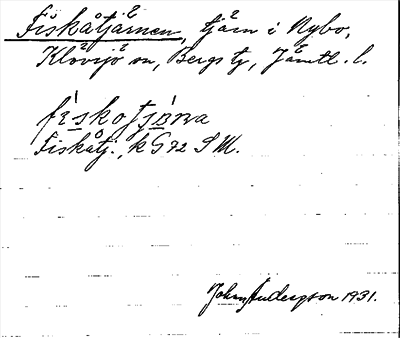 Fiskåtjärnen, tjärn i Nybo,
Klövsjö sn, Bergs tg, Jämtl. l.
fìskotjɑ̀rna
Fiskåtj., k G 72 S M.
Johan Andersson 1931.